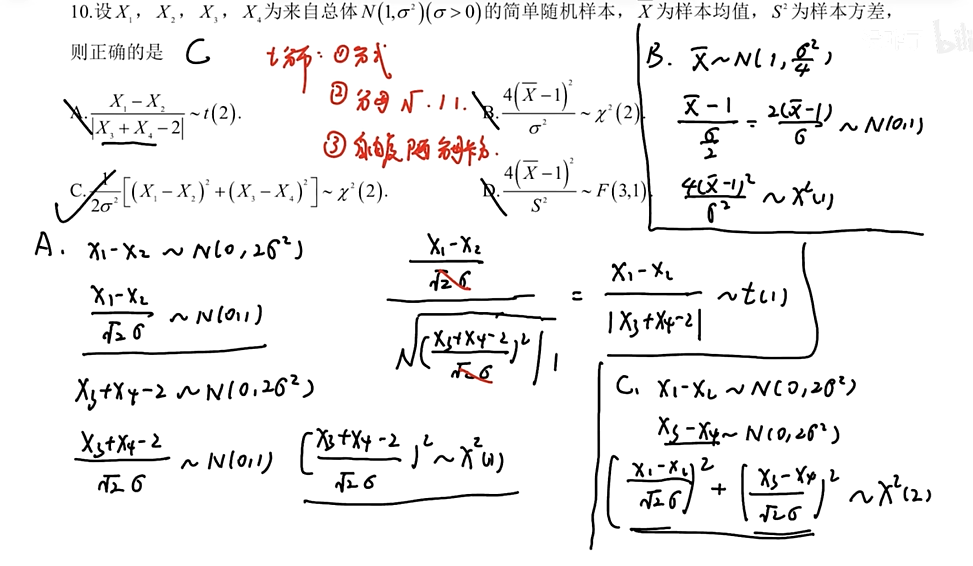 10.设X₁，X₂，X₃，X₄为来自总体N(1,σ²)(σ>0)的简单随机样本，X̄为样本均值，S²为样本方差，
则正确的是 C
A. (X₁−X₂)/|X₃+X₄−2| ~ t(2).
B. 4(X̄−1)²/σ² ~ χ²(2)
C. 1/(2σ²)[(X₁−X₂)²+(X₃−X₄)²] ~ χ²(2).
D. 4(X̄−1)²/S² ~ F(3,1)
t分布：①公式
②分母√. 11.
B. X̄~N(1, σ²/4)
(X̄−1)/(σ/2) = 2(X̄−1)/σ ~ N(0,1)
4(X̄−1)²/σ² ~ χ²(1)
A. X₁−X₂ ~ N(0,2σ²)
(X₁−X₂)/(√2σ) ~ N(0,1)
X₃+X₄−2 ~ N(0,2σ²)
(X₃+X₄−2)/(√2σ) ~ N(0,1) [(X₃+X₄−2)/(√2σ)]² ~ χ²(1)
((X₁−X₂)/(√2σ))/√(((X₃+X₄−2)/(√2σ))²/1) = (X₁−X₂)/|X₃+X₄−2| ~ t(1)
C. X₁−X₂ ~ N(0,2σ²)
X₃−X₄ ~ N(0,2σ²)
((X₁−X₂)/(√2σ))² + ((X₃−X₄)/(√2σ))² ~ χ²(2)